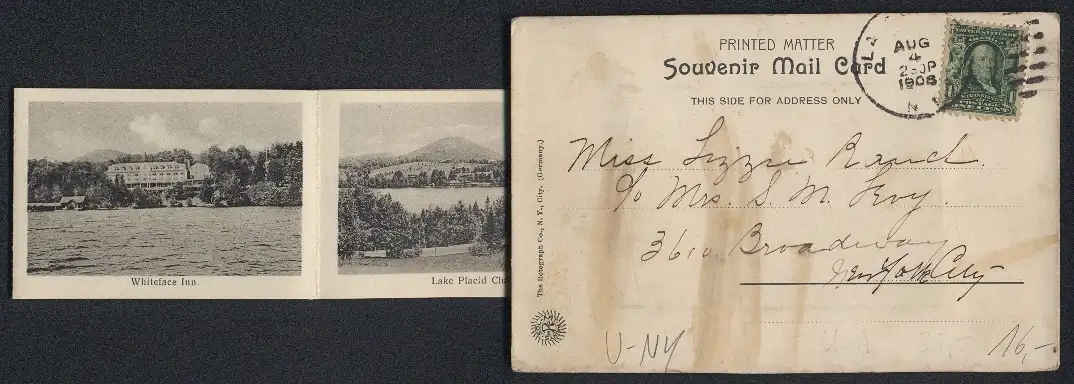 Whiteface Inn.
Lake Placid Clu
PRINTED MATTER
Souvenir Mail Card
THIS SIDE FOR ADDRESS ONLY
LA
AUG
4
2-30P
1908
N
Miss Lizzie Rand.
c/o Mrs. S. M. Levy.
3610 Broadway
New York City
The Rotograph Co., N. Y., City. (Germany.)
U-NY
16,-